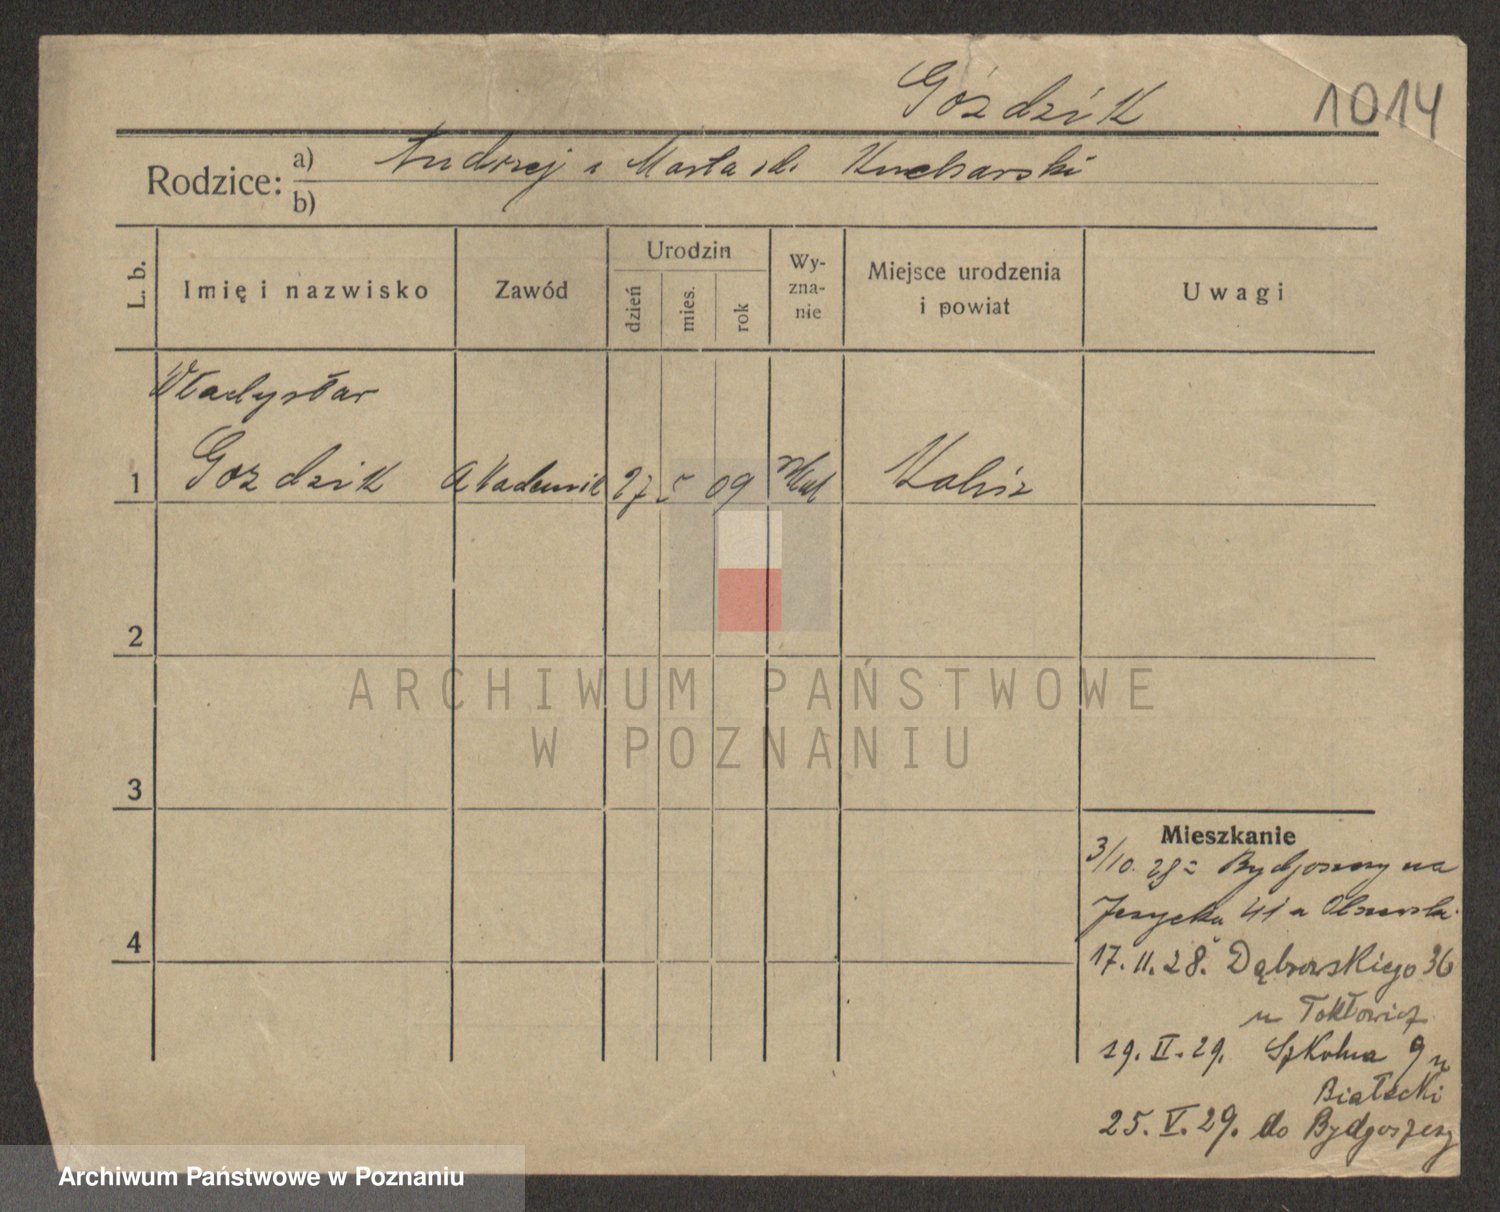 Góździk
1014
Rodzice:
a) Andrzej i Marta zd. Kucharski
b)
L. b.
Imię i nazwisko
Zawód
Urodzin
dzień
mies.
rok
Wy-
zna-
nie
Miejsce urodzenia
i powiat
Uwagi
Władysław
1 Gozdzik Akademik 27 5 09 Kalisz
2
3
4
ARCHIWUM PAŃSTWOWE
W POZNANIU
Mieszkanie
3/10. 28 z Bydgoszczy na
41 a
17. 11. 28. Dąbrowskiego 36
u Tokłowicz
19. II. 29. Szkolna 9 u
Białecki
25. V. 29. do Bydgoszczy
Archiwum Państwowe w Poznaniu